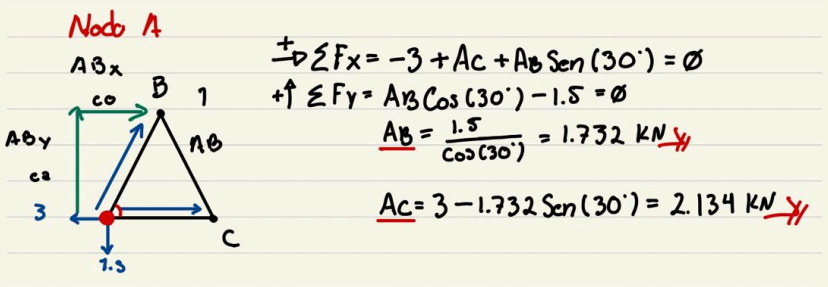 Nodo A
ABx
co
B 1
ABy
AB
ca
3
C
1.5
+→ ΣFx = -3 + Ac + AB Sen(30°) = 0
+↑ ΣFy = AB Cos(30°) - 1.5 = 0
AB = 1.5 / Cos(30°) = 1.732 KN
Ac = 3 - 1.732 Sen(30°) = 2.134 KN